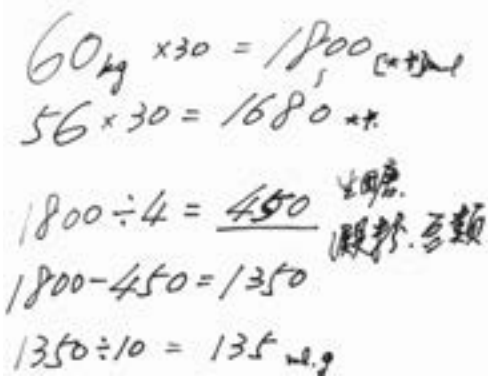 60kg ×30 = 1800
56×30 = 1680 大卡
1800÷4 = 450
澱粉.豆類
1800-450=1350
1350÷10 = 135 ml.g